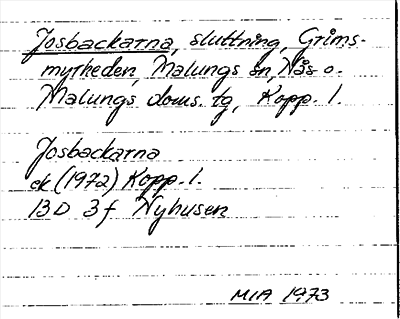 Josbackarna, sluttning, Gríms-
myrheden, Malungs sn, Nås o.
Malungs doms. tg, Kopp. l.
Josbackarna
ek (1972) Kopp. l.
13D 3f Nyhusen
MIA 1973